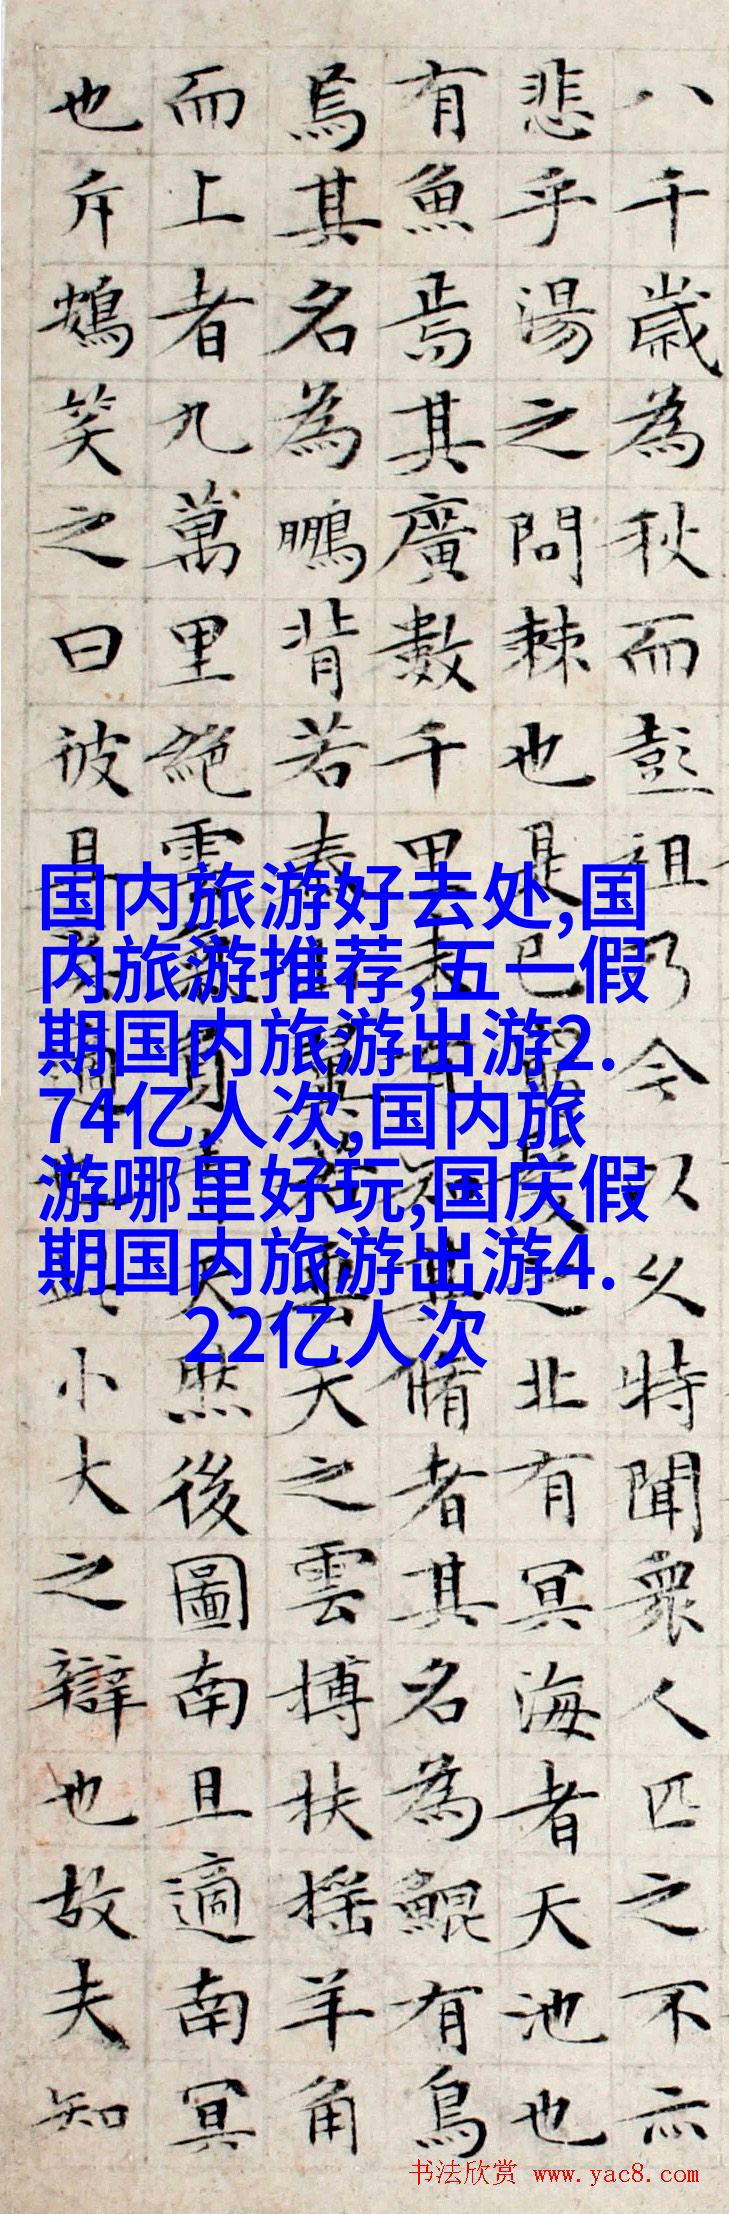 八千歲為秋而彭祖乃今以久特聞衆人匹之不亦
悲乎湯之問棘也是已窮髮之北有冥海者天池也
有魚焉其廣數千里未有知其脩者其名為鯤有鳥
焉其名為鵬背若泰山翼若垂天之雲搏扶搖羊角
而上者九萬里絕雲氣負青天然後圖南且適南冥
也斥鴳笑之曰彼且奚適也此小大之辯也故夫知
国内旅游好去处,国
内旅游推荐,五一假
期国内旅游出游2.
74亿人次,国内旅
游哪里好玩,国庆假
期国内旅游出游4.
22亿人次
书法欣赏 www.yac8.com